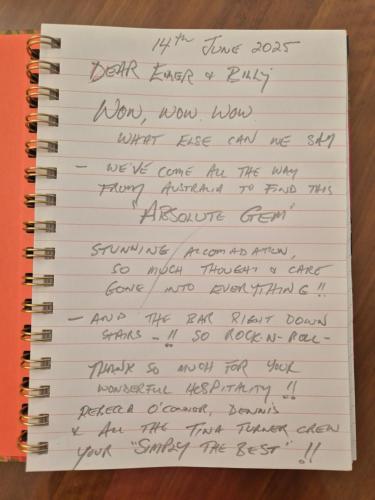 14th June 2025
Dear Emer & Billy
Wow, wow. wow.
What else can we say
- We've come all the way
from Australia to find this
'Absolute Gem'
Stunning accomadation,
so much thought & care
gone into everything !!
- And the bar right down
stairs - !! So rock-n-roll -
Thank so much for your
wonderful hospitality !!
Rebecca O'Connor, Dennis
& all the Tina Turner crew
your "Simply the Best" !!